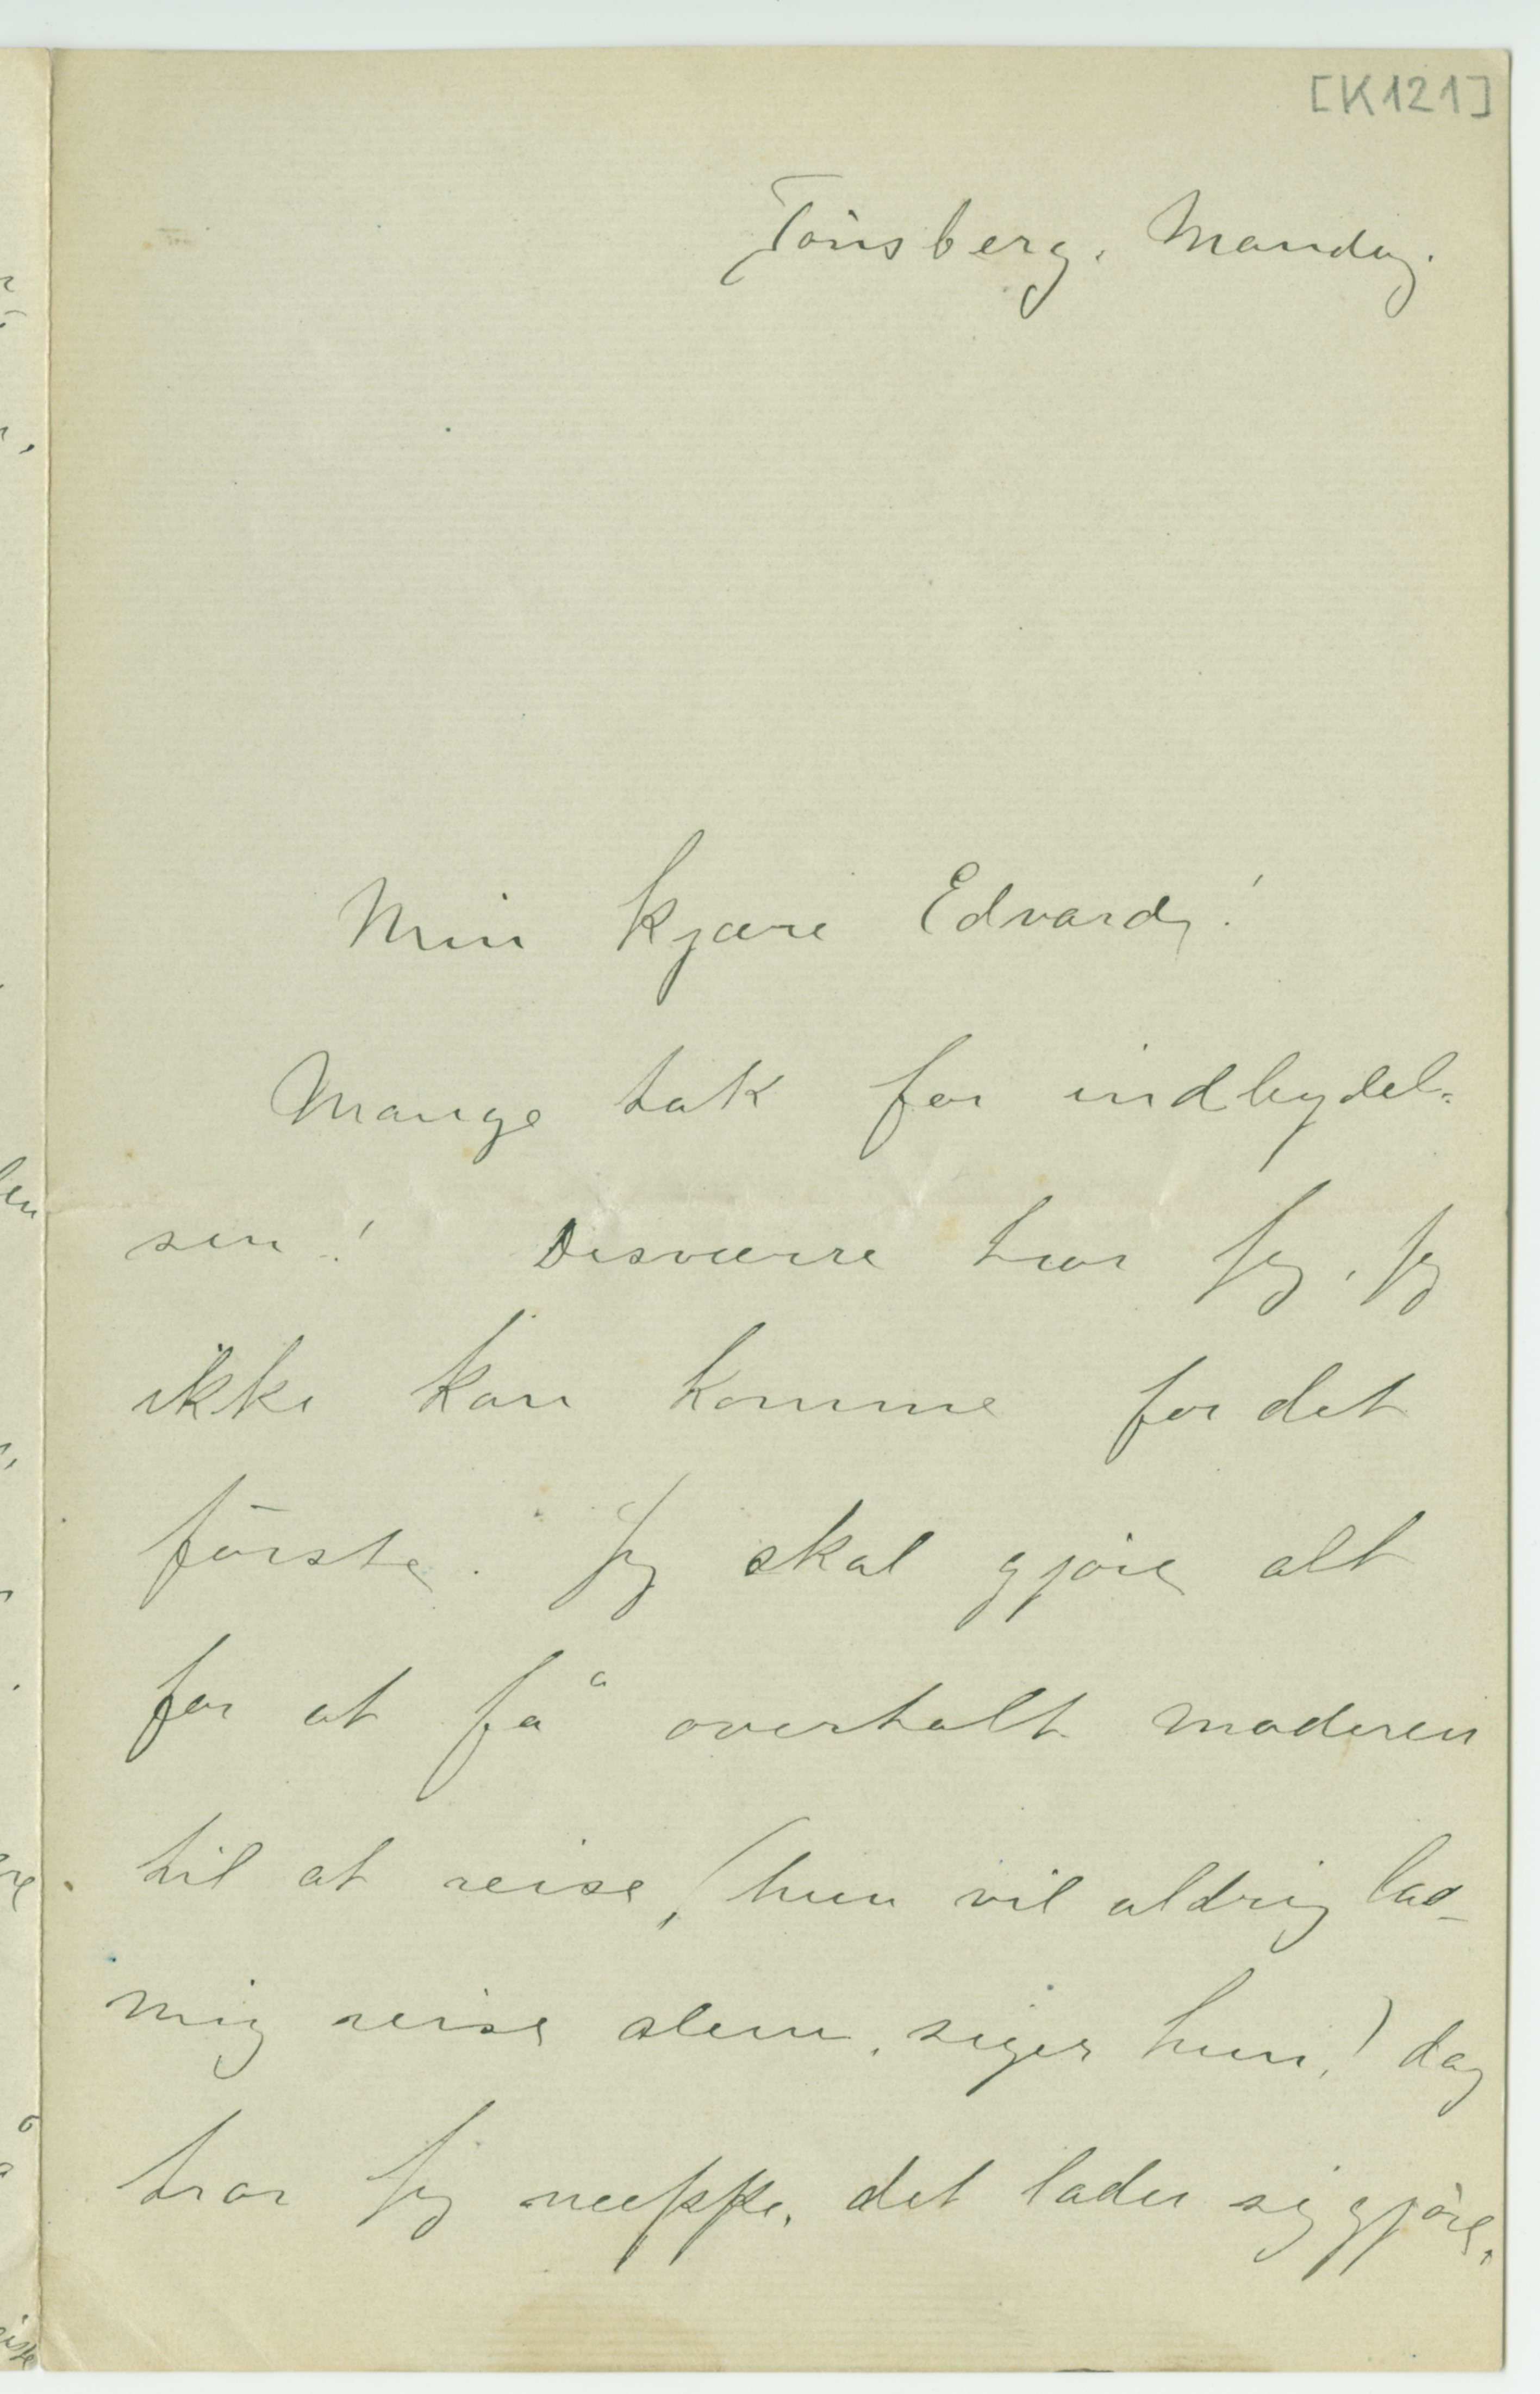 [K121]
Tönsberg. Mandag.
Min kjære Edvard!
Mange tak for indbydel-
sen! Desværre tror jeg, jeg
ikke kan komme for det
förste. Jeg skal gjöre alt
for at få overtalt moderen
til at reise, (hun vil aldrig lad-
mig reise alene, siger hun,) dog
tror jeg neppe, det lader sig gjöre,